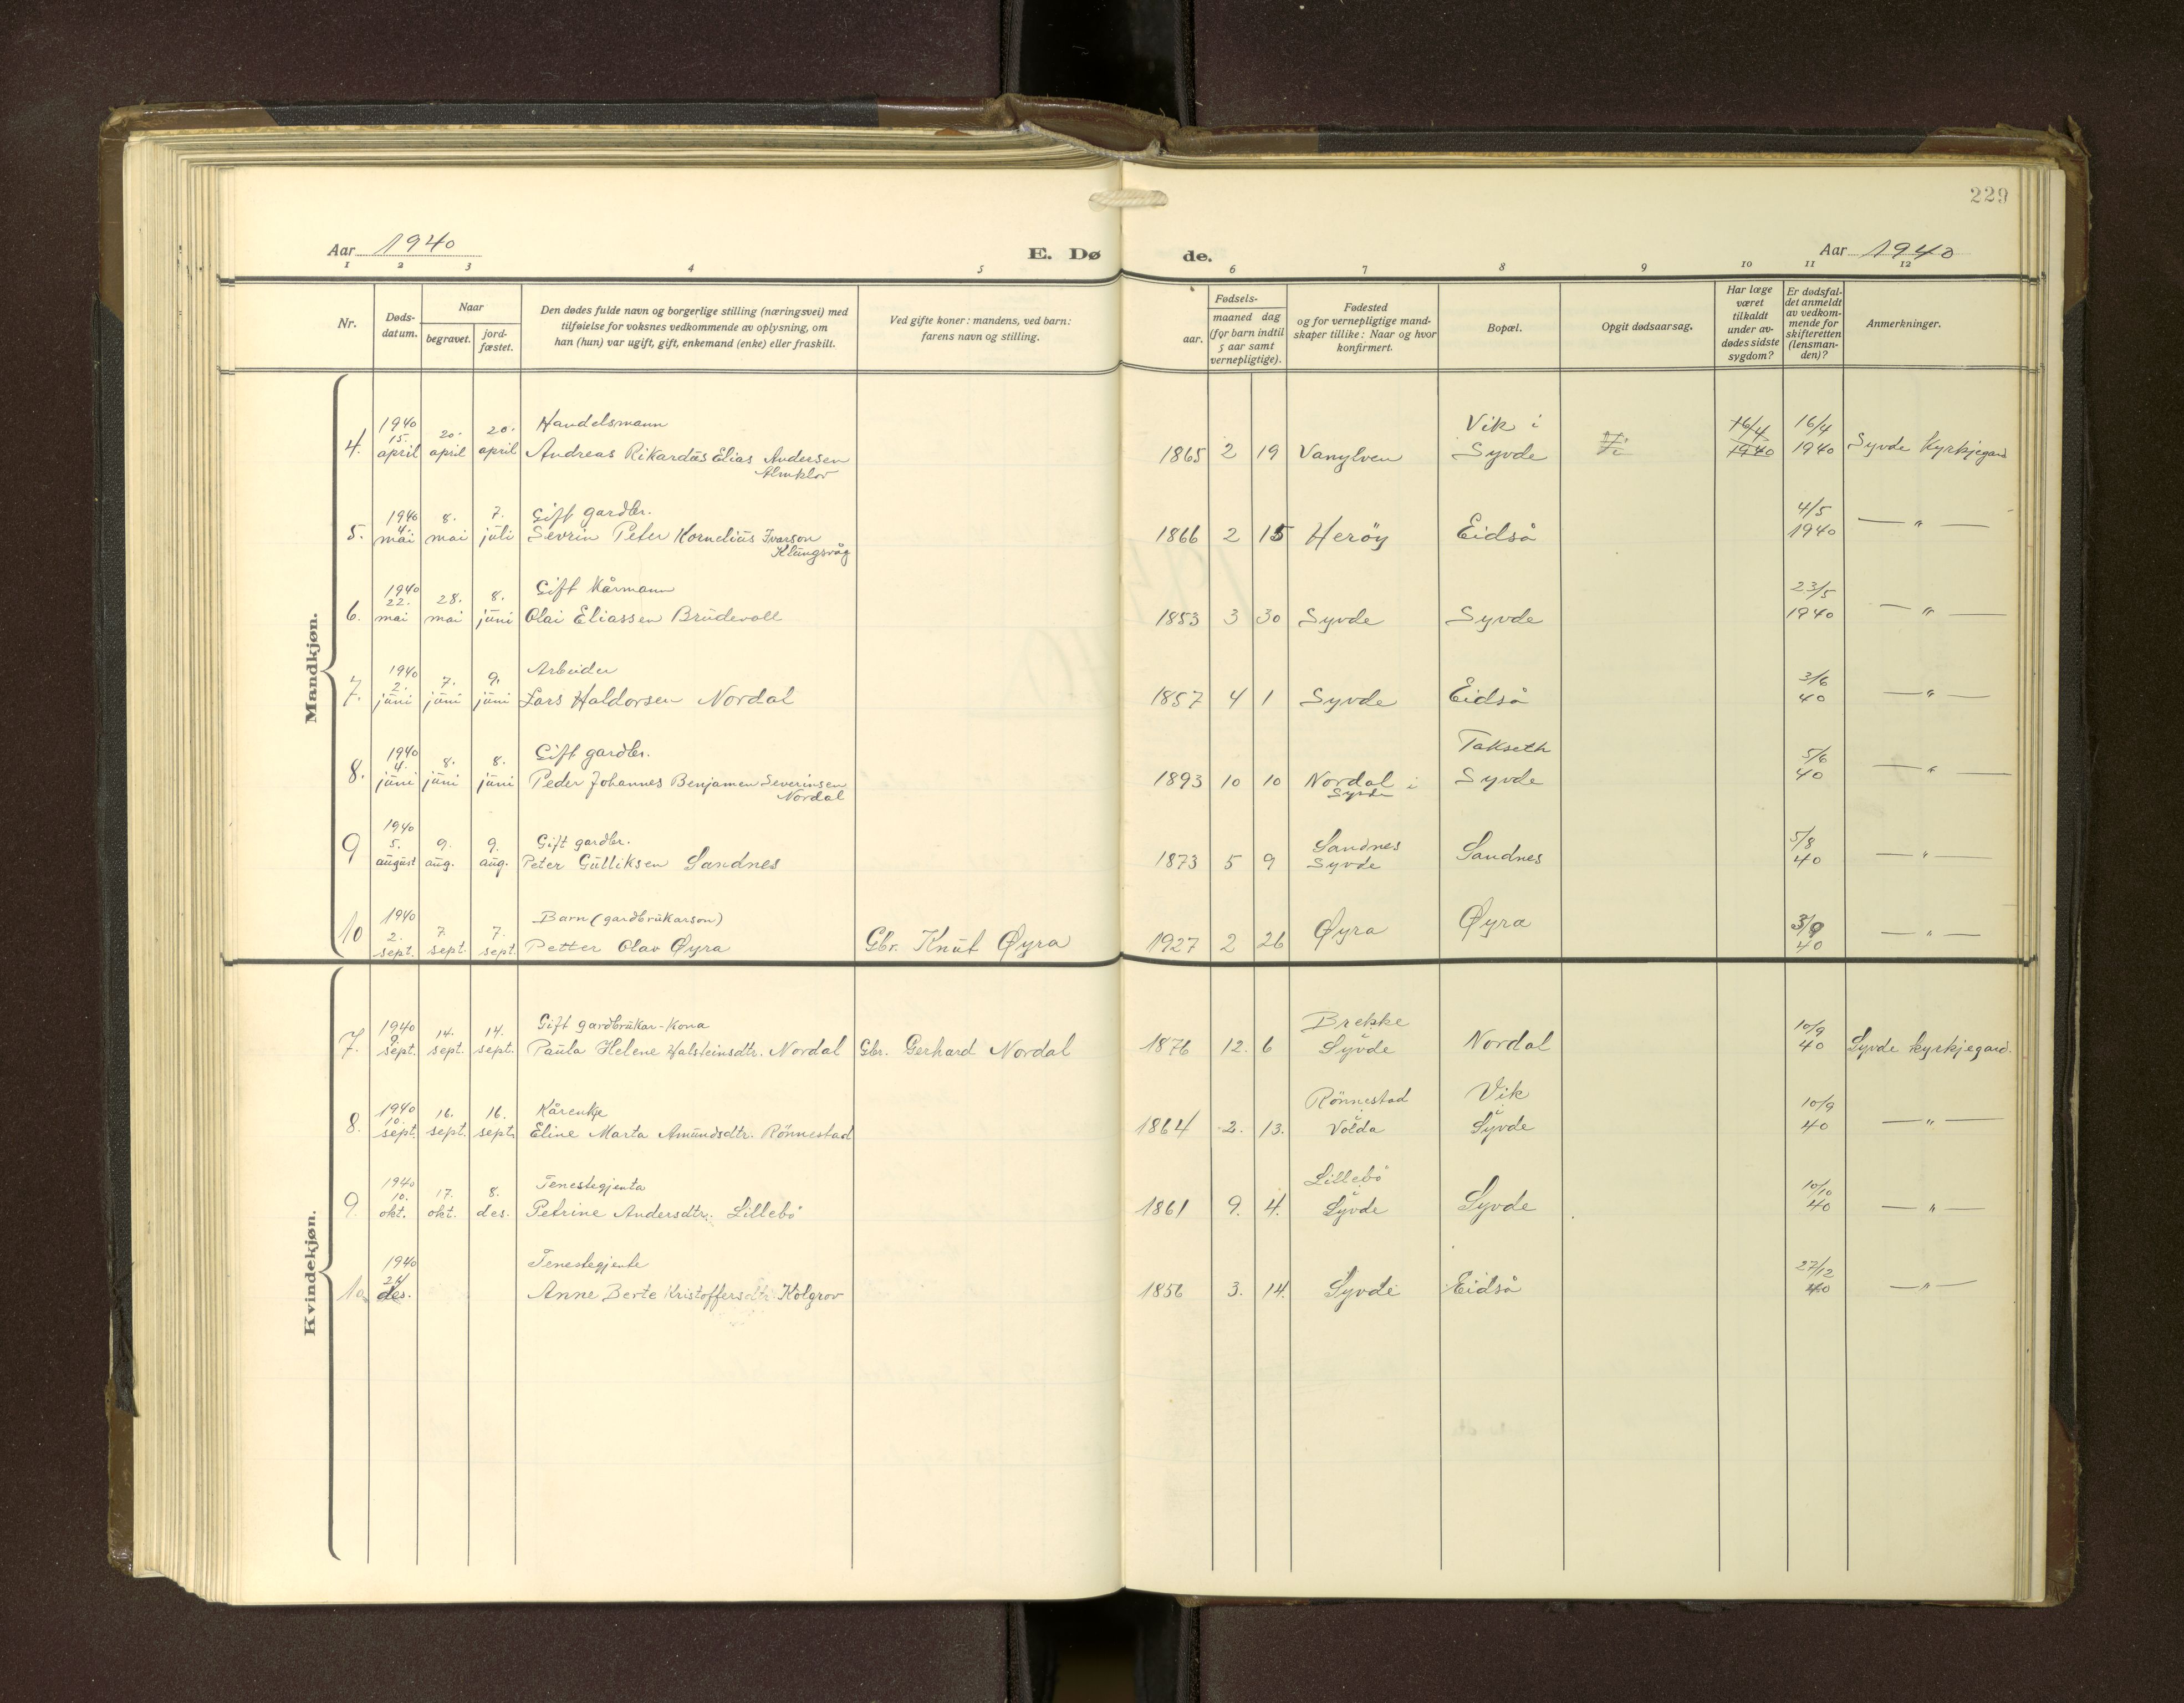 229
Aar 1940
E. Døde.
Aar 1940
1 2 3 4 5 6 7 8 9 10 11 12
Nr.
Døds-
datum.
Naar
begravet.
jord-
fæstet.
Den dødes fulde navn og borgerlige stilling (næringsvei) med
tilføielse for voksnes vedkommende av oplysning, om
han (hun) var ugift, gift, enkemand (enke) eller fraskilt.
Ved gifte koner: mandens, ved barn:
farens navn og stilling.
Fødsels-
aar.
maaned dag
(for barn indtil
5 aar samt
vernepligtige).
Fødested
og for vernepligtige mand-
skaper tillike: Naar og hvor
konfirmert.
Bopæl.
Opgit dødsaarsag.
Har læge
været
tilkaldt
under av-
dødes sidste
sygdom?
Er dødsfal-
det anmeldt
av vedkom-
mende for
skifteretten
(lensman-
den)?
Anmerkninger.
Mandkjøn.
4. 1940 15. april 20. april 20. april Handelsmann
Andreas Rikardus Elias Andersen
Almklov
1865 2 19 Vanylven Vik i Syvde 16/4 1940 16/4 1940 Syvde Kyrkjegard
5. 1940 4. mai 8. mai 7. juli Gift gardbr.
Sevrin Peter Kornelius Ivarson
Klungsvåg
1866 2 15 Heröy Eidså 4/5 1940 — " —
6. 1940 22. mai 28. mai 8. juni Gift Kårmann
Olai Eliassen Brudevoll
1853 3 30 Syvde Syvde 23/5 1940 — " —
7. 1940 2. juni 7. juni 9. juni Arbeider
Lars Haldorsen Nordal
1857 4 1 Syvde Eidså 3/6 40 — " —
8. 1940 4. juni 8. juni 8. juni Gift gardbr.
Peder Johannes Benjamen Severinsen
Nordal
1893 10 10 Nordal i Syvde Takseth Syvde 5/6 40 — " —
9 1940 5. august 9. aug. 9. aug. Gift gardbr.
Peter Gulliksen Sandnes
1873 5 9 Sandnes Syvde Sandnes 5/8 40 — " —
10 1940 2. sept. 7. sept. 7. sept. Barn (gardbrukarson)
Petter Olav Øyra Gbr. Knut Øyra
1927 2 26 Øyra Øyra 3/9 40 — " —
Kvindekjøn.
7. 1940 9. sept. 14. sept. 14. sept. Gift gardbrukar-Kona
Paula Helene Halsteinsdtr. Nordal Gbr. Gerhard Nordal
1876 12. 6 Brekke i Syvde Nordal 10/9 40 Syvde kyrkjegard.
8. 1940 10. sept. 16. sept. 16. sept. Kårenkje
Eline Marta Amundsdtr. Rönnestad
1864 2. 13. Rönnestad i Volda Vik i Syvde 10/9 40 — " —
9. 1940 10. okt. 17. okt. 8. des. Tenestegjenta
Petrine Andersdtr. Lillebö
1861 9. 4. Lillebö i Syvde Syvde 10/10 40 — " —
10. 1940 24 des. Tenestegjente
Anne Berte Kristoffersdtr. Kolgrov
1856 3. 14. Syvde Eidså 27/12 40 — " —